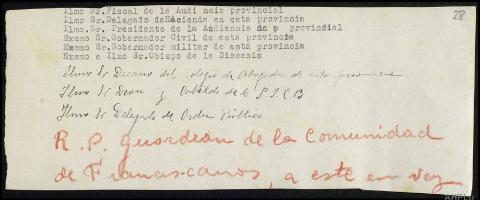 28
Ilmo Sr. Fiscal de la Audi ncia provincial
Ilmo Sr. Delegado de Hacienda en esta provincia
Ilmo Sr. Presidente de la Audiencia provincial
Exemo Sr. Gobernador Civil de esta provincia
Exemo Sr. Gobernador militar de esta provincia
Exemo e Ilmo Sr. Obispo de la Diocesis
Ilmo Sr Decano del Colegio de Abogados de esta provincia
Ilmo Sr Dean y Cabildo de la S.I.C.B
Ilmo Sr Delegado de Orden Público
R. P. guardean de la Comunidad
de Francis-canos, a este en vez